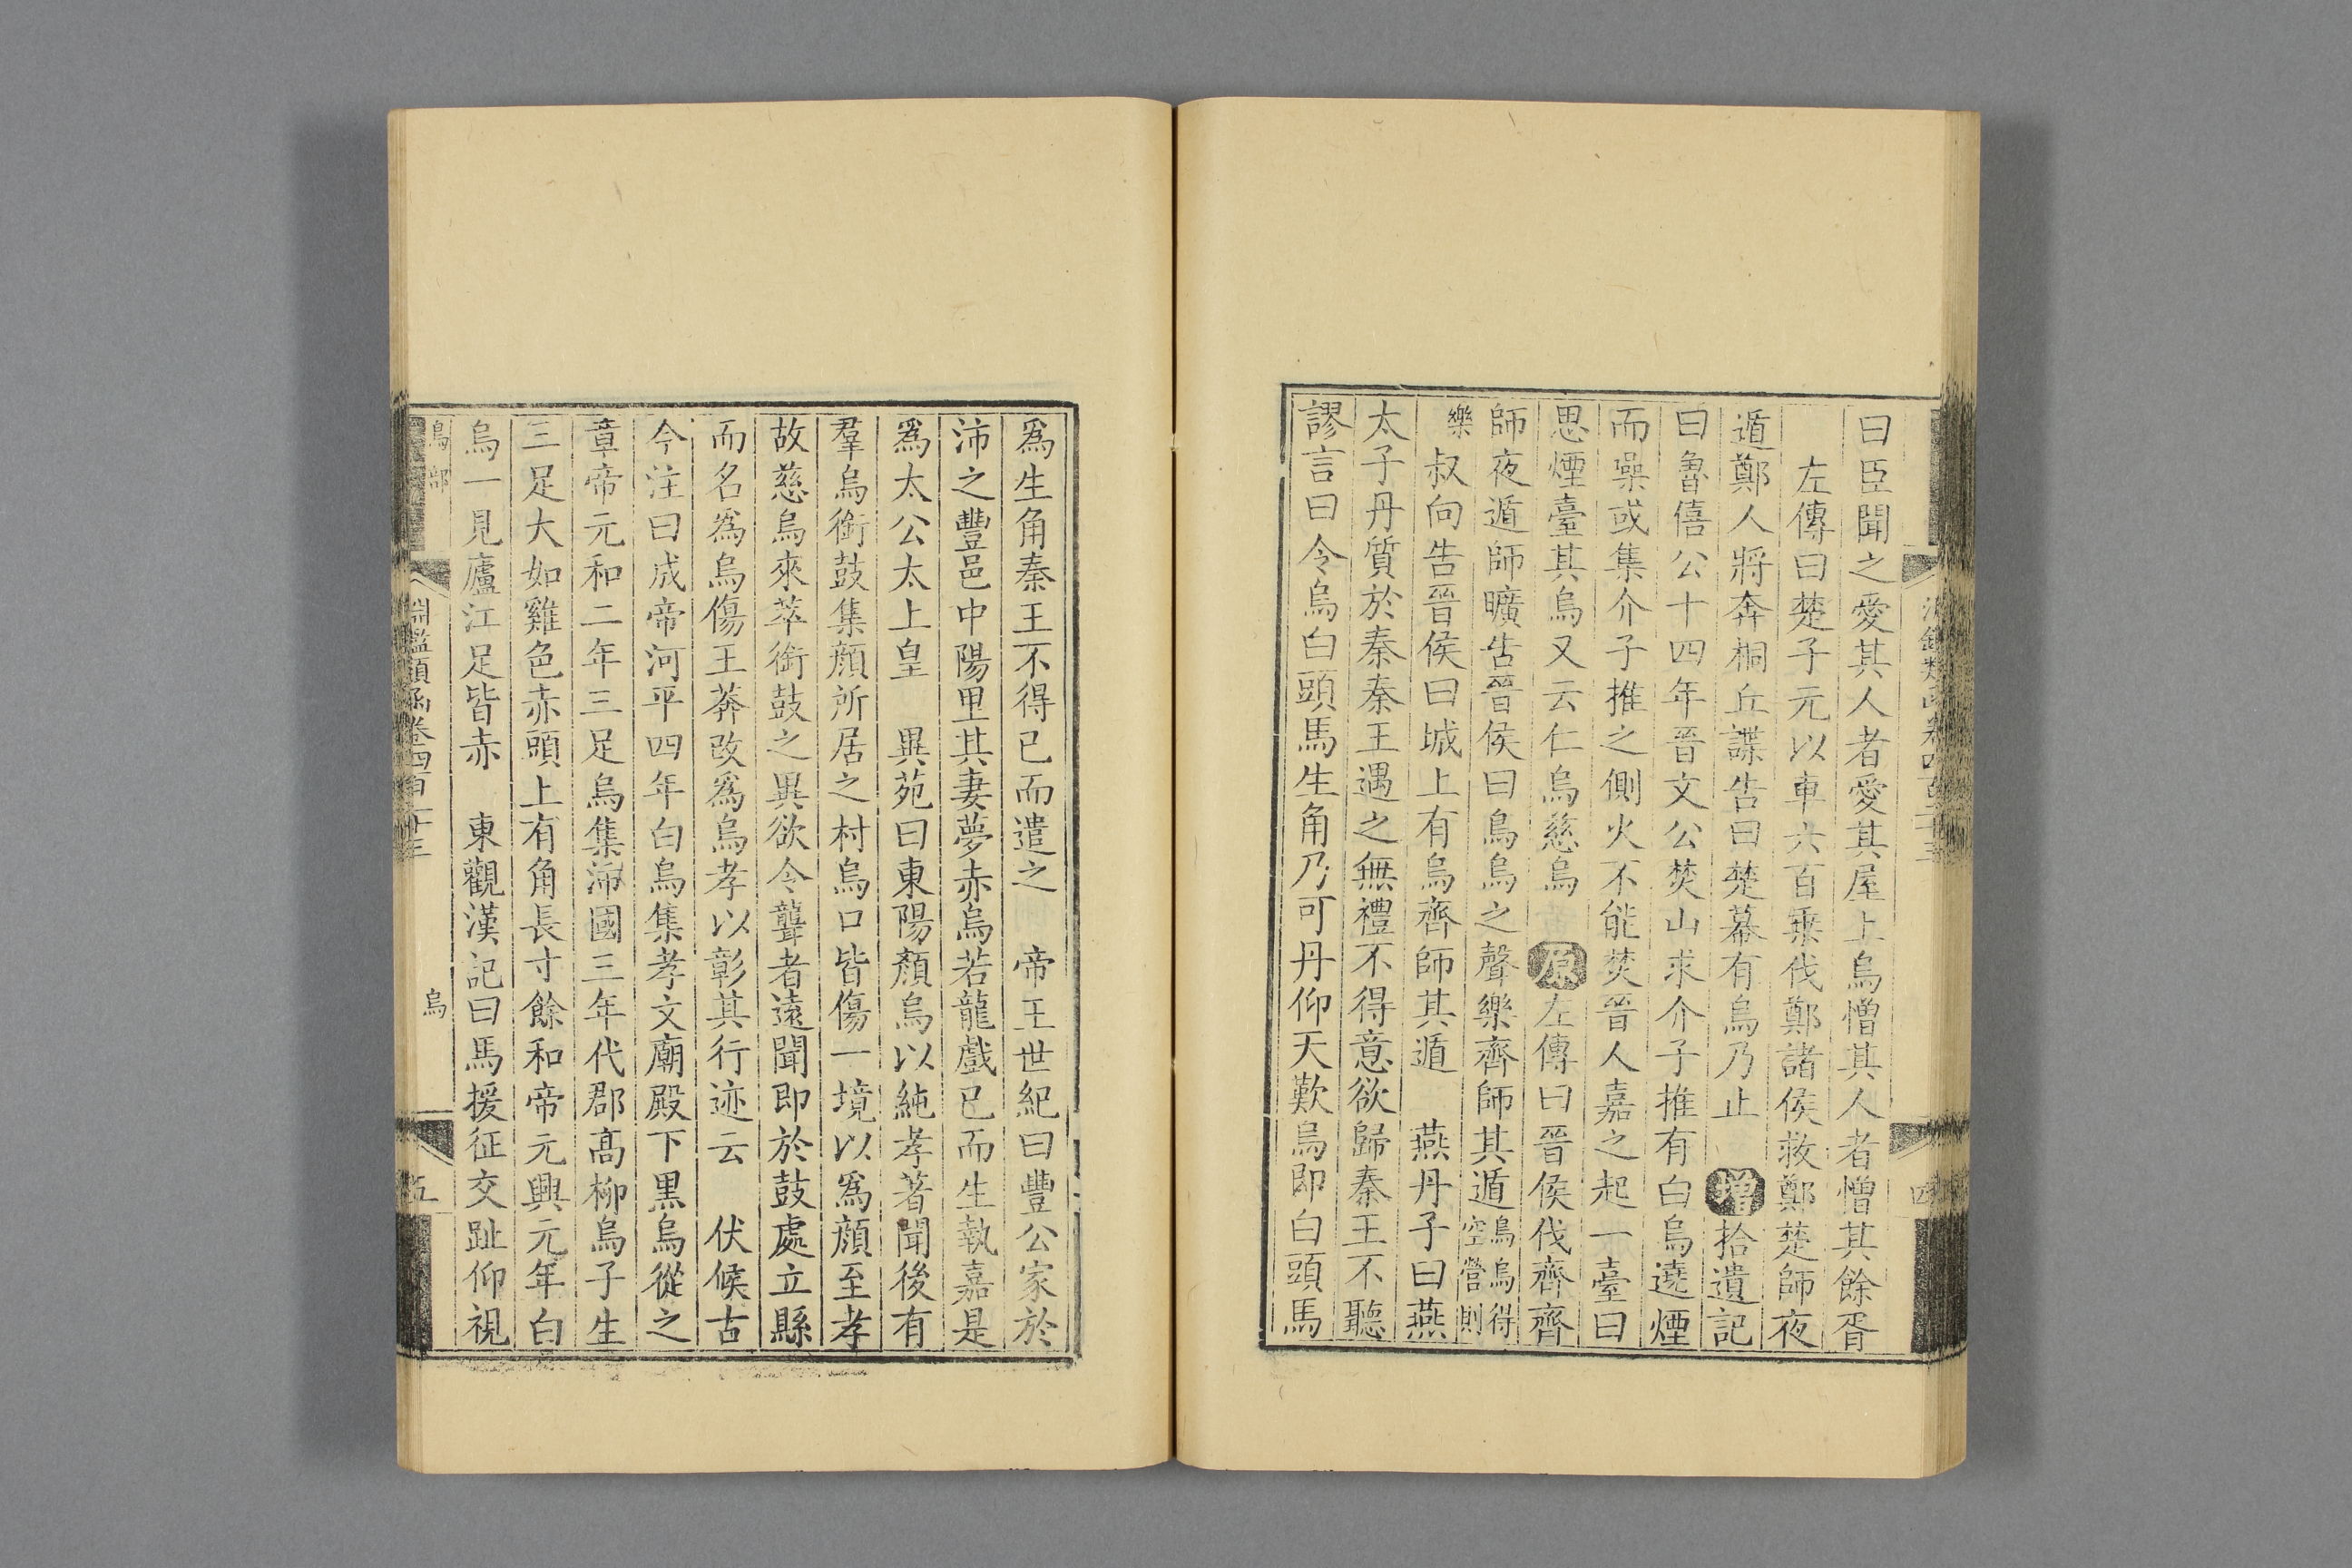 淵鑑類函卷四百二十三
四
曰臣聞之愛其人者愛其屋上烏憎其人者憎其餘胥
左傳曰楚子元以車六百乗伐鄭諸侯救鄭楚師夜
遁鄭人將奔桐丘諜告曰楚幕有烏乃止 增拾遺記
曰魯僖公十四年晉文公焚山求介子推有白烏遶煙
而噪或集介子推之側火不能焚晉人嘉之起一臺曰
思煙臺其烏又云仁烏慈烏 原左傳曰晉侯伐齊齊
師夜遁師曠告晉侯曰鳥烏之聲樂齊師其遁鳥烏得空營則
樂 叔向告晉侯曰城上有烏齊師其遁 燕丹子曰燕
太子丹質於秦秦王遇之無禮不得意欲歸秦王不聽
謬言曰令烏白頭馬生角乃可丹仰天歎烏即白頭馬
爲生角秦王不得已而遣之 帝王世紀曰豐公家於
沛之豐邑中陽里其妻夢赤烏若龍戲已而生執嘉是
爲太公太上皇 異苑曰東陽顏烏以純孝著聞後有
羣烏銜鼓集顏所居之村烏口皆傷一境以爲顏至孝
故慈烏來萃銜鼓之異欲令聾者遠聞即於鼓處立縣
而名爲烏傷王莽改爲烏孝以彰其行迹云 伏候古
今注曰成帝河平四年白烏集孝文廟殿下黒烏從之
章帝元和二年三足烏集沛國三年代郡髙柳烏子生
三足大如雞色赤頭上有角長寸餘和帝元興元年白
烏一見廬江足皆赤 東觀漢記曰馬援征交趾仰視
鳥部
淵鑑類函卷四百二十三
烏
五